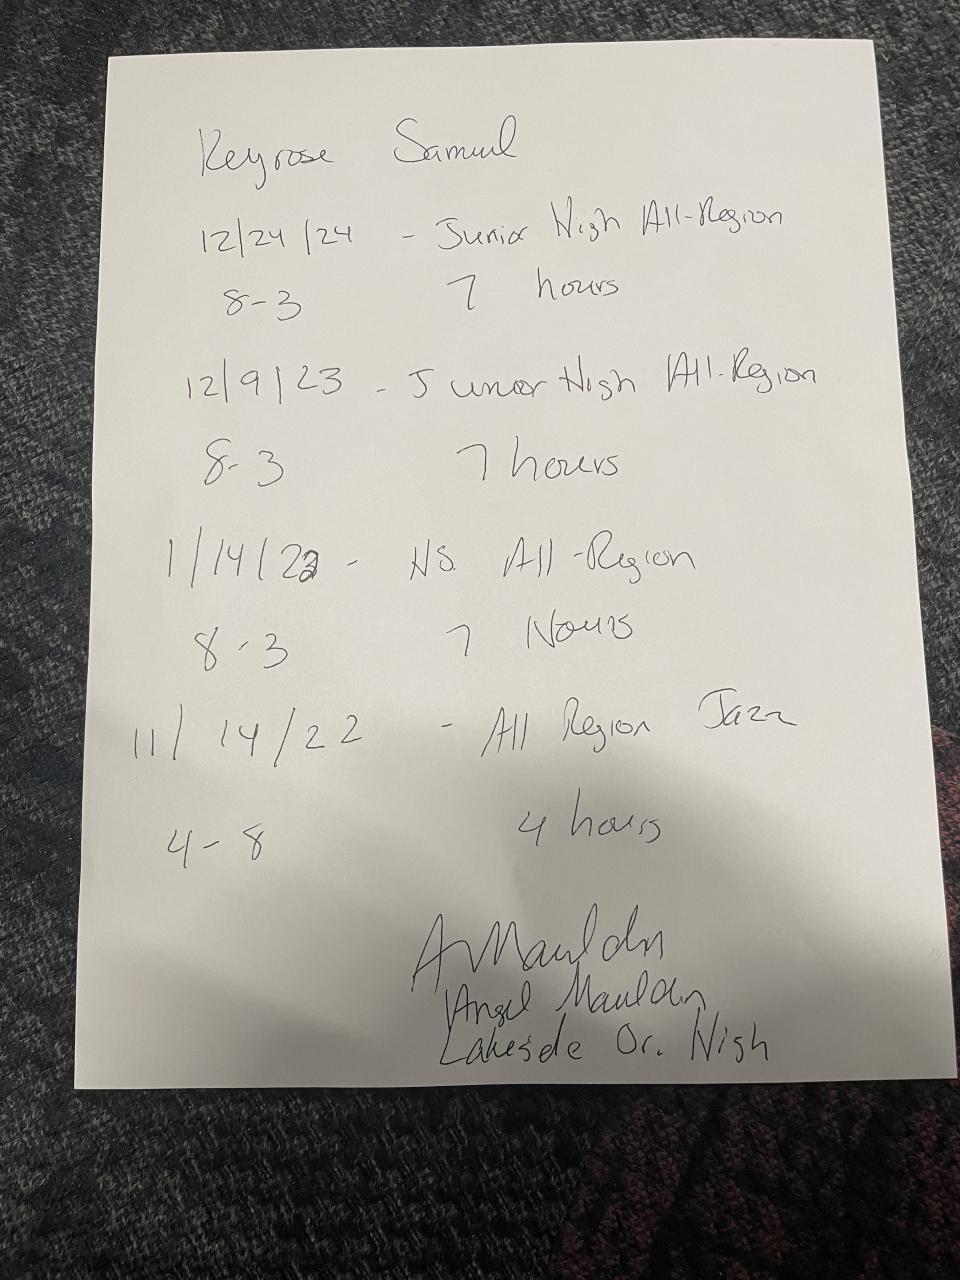 Keyrose Samuel
12/24/24 - Junior High All-Region
8-3 7 hours
12/9/23 - Junior High All-Region
8-3 7 hours
1/14/23 - HS. All-Region
8-3 7 Hours
11/14/22 - All Region Jazz
4-8 4 hours
A Mauldin
Angel Mauldin
Lakeside Jr. High